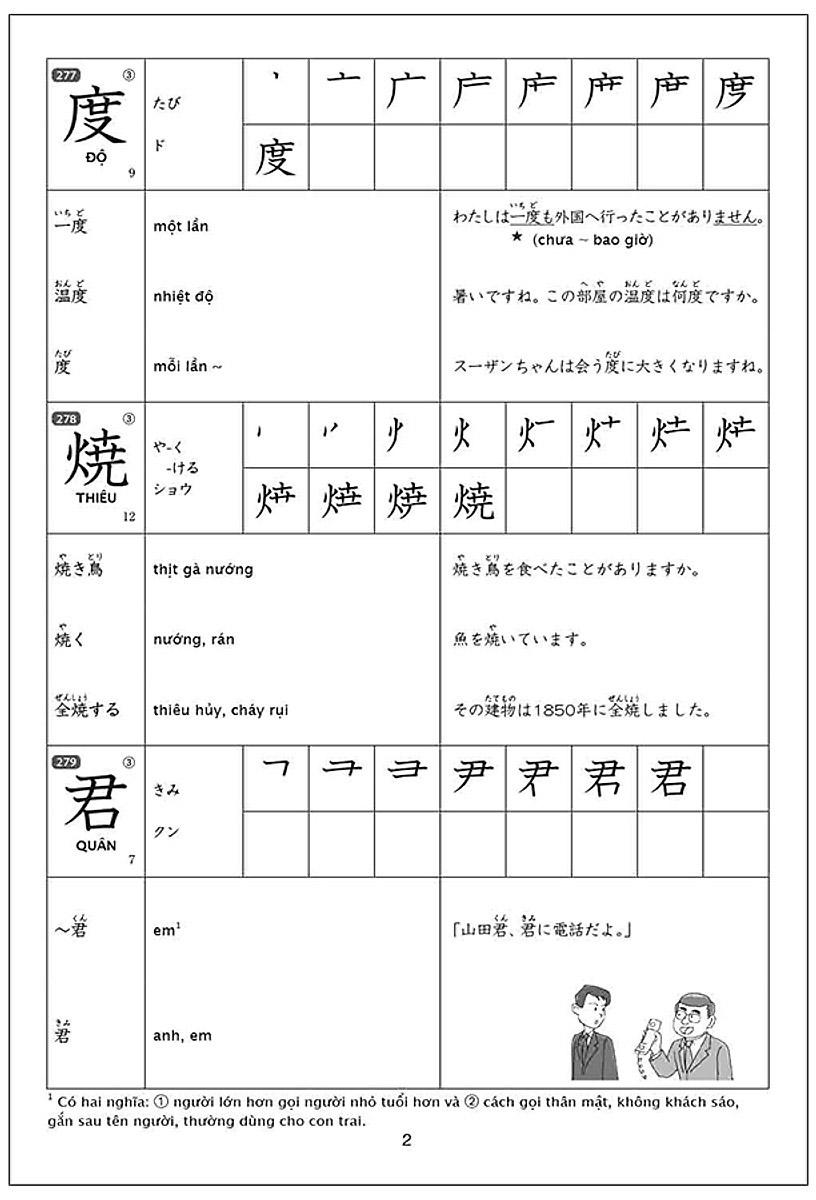 277 ③
度
ĐỘ
9
たび
ド
丶 亠 广 庐 度
度
いち ど
一度
một lần
いち ど
わたしは一度も外国へ行ったことがありません。
★ (chưa ~ bao giờ)
おん ど
温度
nhiệt độ
へ や おん ど なん ど
暑いですね。この部屋の温度は何度ですか。
たび
度
mỗi lần ~
たび
スーザンちゃんは会う度に大きくなりますね。
278 ③
焼
THIÊU
12
や-く
-ける
ショウ
焼
や とり
焼き鳥
thịt gà nướng
や とり
焼き鳥を食べたことがありますか。
や
焼く
nướng, rán
や
魚を焼いています。
ぜんしょう
全焼する
thiêu hủy, cháy rụi
たてもの ぜんしょう
その建物は1850年に全焼しました。
279 ③
君
QUÂN
7
きみ
クン
尹 君
くん
～君
em¹
くん きみ
「山田君、君に電話だよ。」
きみ
君
anh, em
¹ Có hai nghĩa: ① người lớn hơn gọi người nhỏ tuổi hơn và ② cách gọi thân mật, không khách sáo,
gắn sau tên người, thường dùng cho con trai.
2